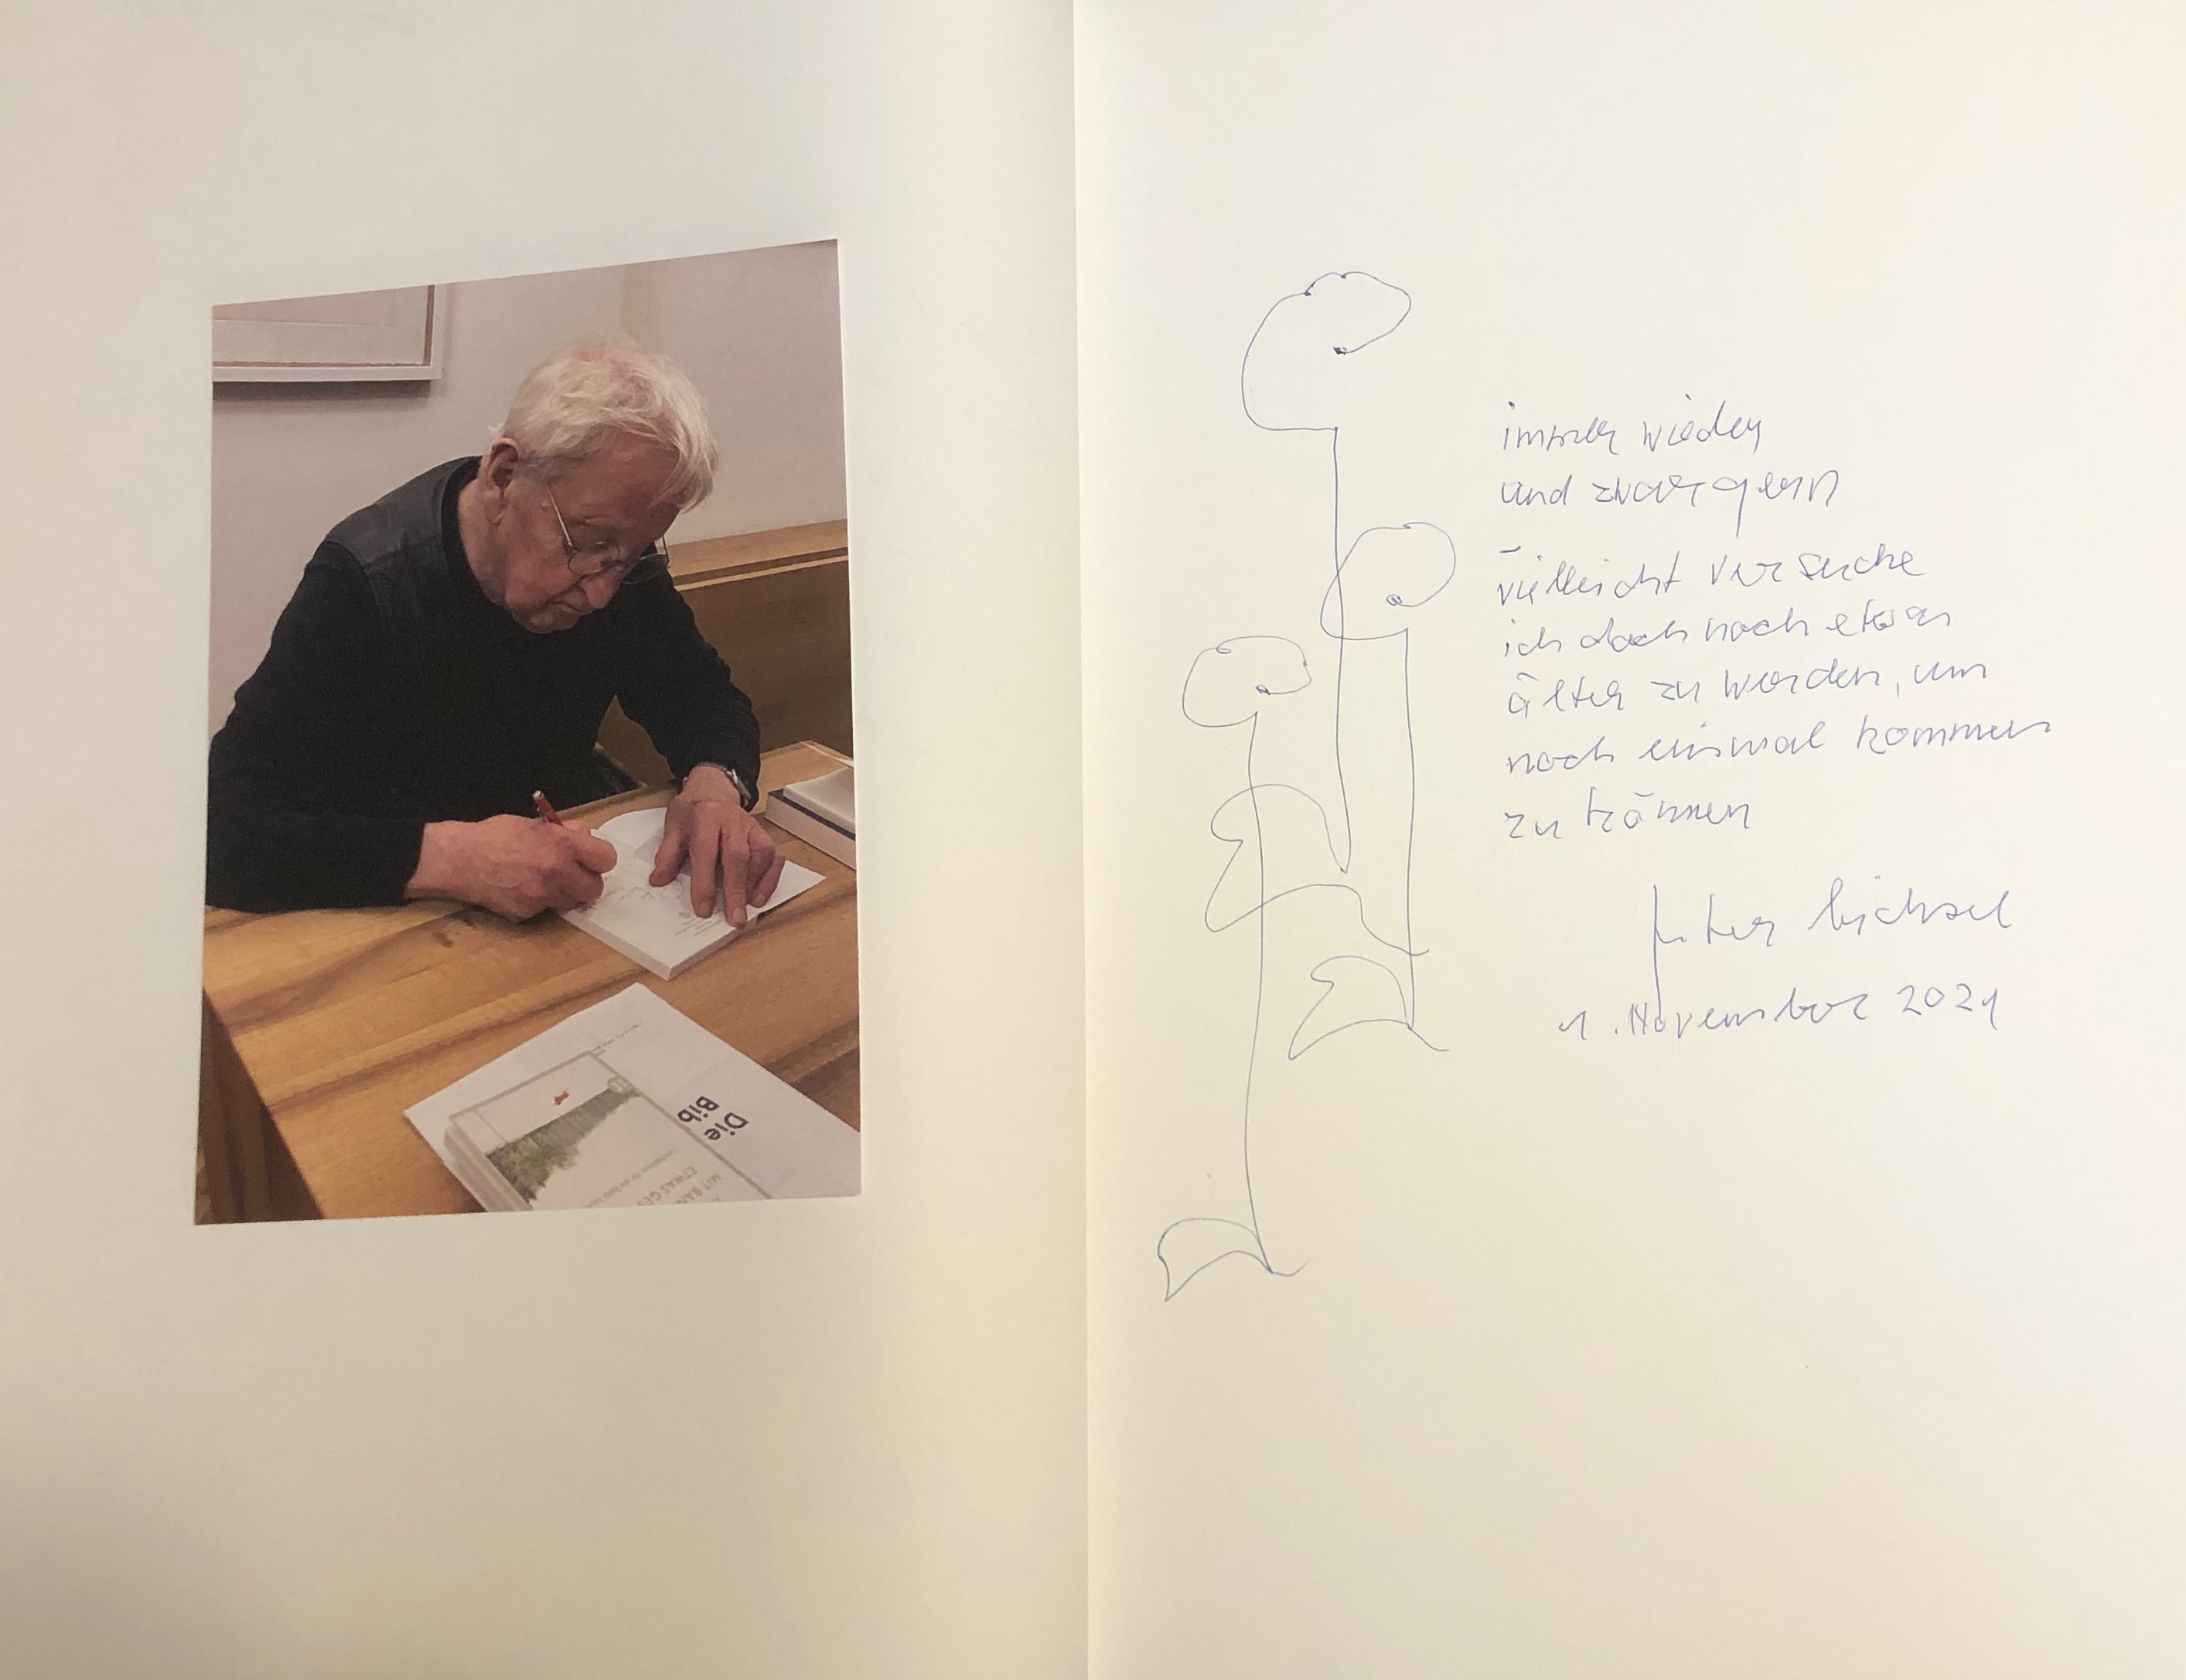 Die
Bib
ETWAS GES
immer wieder
und zwar gern
–
vielleicht versuche
ich doch noch etwas
älter zu werden, um
noch einmal kommen
zu können
Peter Bichsel
1. November 2021